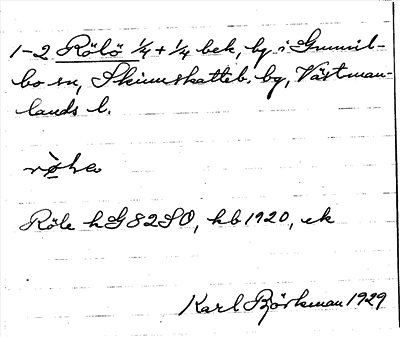 1-2 Rölö ¼ + ¼ bek, by i Gunnil-
bo sn, Skinnskatteb. bg, Västman-
lands l.
Röle hG82SO, hb 1920, ek
Karl Björkman 1929